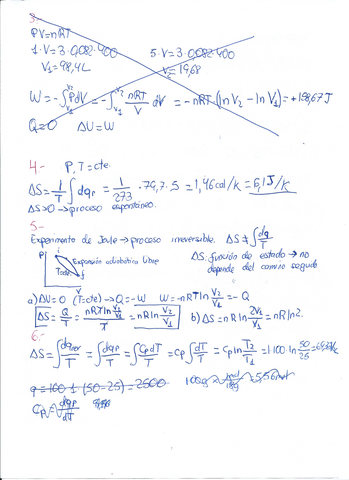 3.-
PV=nRT
1·V=3·0,082·400    5·V=3·0,082·400
V₁=98,4L    V₂=19,68
W=-∫PdV=-∫nRT/V dV=-nRT(ln V₂ - ln V₁)=+198,67J
Q=0    ΔU=W
4.-    P,T=cte.
ΔS=1/T ∫dqp=1/273·79,7·5=1,46cal/K=6,1J/K
ΔS>0→proceso espontáneo.
5.-
Experimento de Joule→proceso irreversible. ΔS≠∫dq/T
P    Expansión adiabática libre    ΔS función de estado→no
depende del camino seguido
V
a) ΔU=0 (T=cte)→Q=-W    W=-nRTln V₂/V₁=-Q
ΔS=Q/T=nRTln V₂/V₁/T=nRln V₂/V₁    b) ΔS=nRln 2V₁/V₁=nRln2.
6.-
ΔS=∫dqrev/T=∫dqp/T=∫CpdT/T=Cp∫dT/T=Cpln T₂/T₁=1·100·ln 50/25=69,3
q=100·1(50-25)=2500    100g    5,56mol
Cp=dqp/dT